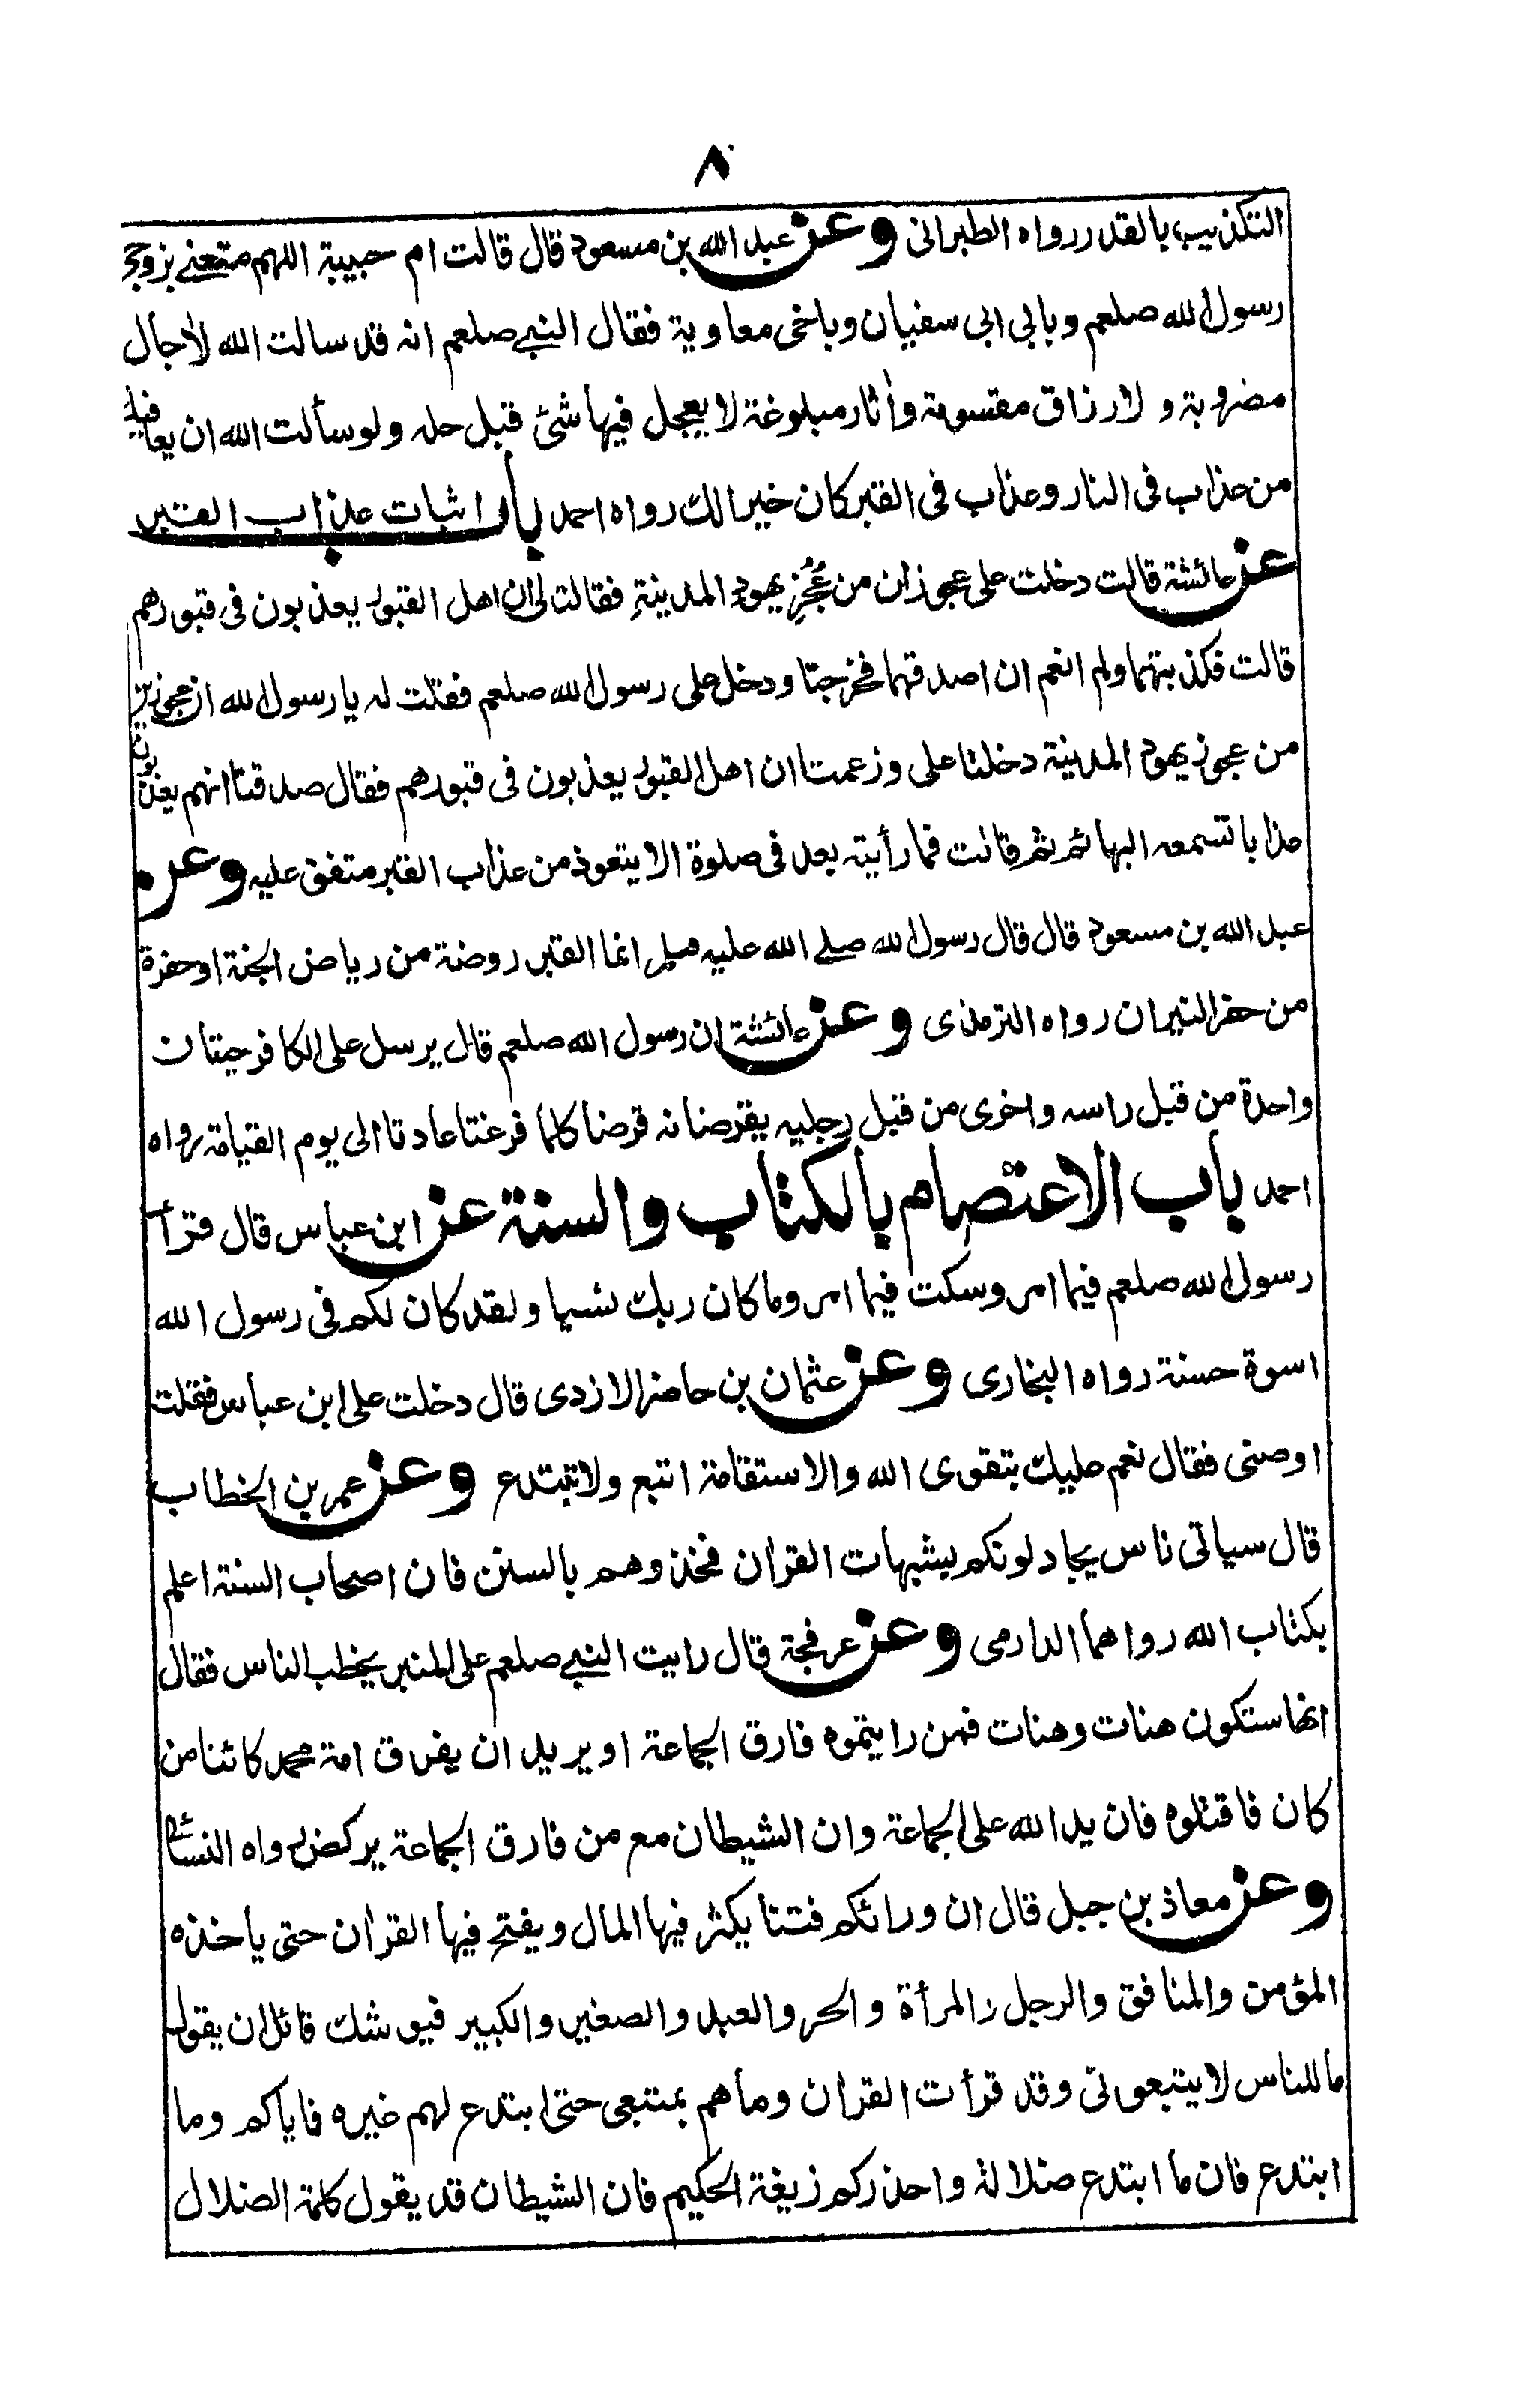 ٨
التكذيب بالقدر رواه الطبرانى وعن عبد الله بن مسعود قال قالت ام حبيبة اللهم متعنے بزوجے
رسول الله صلعم وبابى ابى سفيان وباخى معاوية فقال النبے صلعم انه قد سالت الله لأجال
مضروبة و لارزاق مقسومة وأثار مبلوغة لا يعجل فيها شئ قبل حله ولو سألت الله ان يعافيك
من عذاب فى النار وعذاب فى القبر كان خيرا لك رواه احمد باب اثبات عذاب القبر
عن عائشة قالت دخلت على عجوزان من عُجُزِ يهودِ المدينةِ فقالتا لى ان اهل القبور يعذبون فى قبورهم
قالت فكذبتهما ولم انعم ان اصدقهما فخرجتا ودخل على رسول الله صلعم فقلت له يا رسول الله ان عجوزين
من عجوز يهود المدينة دخلتا على وزعمتا ان اهل القبور يعذبون فى قبورهم فقال صدقتا انهم يعذبون
عذابا تسمعه البهائم ثم قالت فما رأيته بعد فى صلوة الا يتعوذ من عذاب القبر متفق عليه وعن
عبد الله بن مسعود قال قال رسول الله صلے الله عليه وسلم انما القبر روضة من رياض الجنة او حفرة
من حفر النيران رواه الترمذى وعن عائشة ان رسول الله صلعم قال يرسل على الكافر حيتان
واحدة من قبل راسه واخرى من قبل رجليه يقرضانه قرضا كلما فرغتا عادتا الى يوم القيامة رواه
احمد باب الاعتصام بالكتاب والسنة عن ابن عباس قال قرأ
رسول الله صلعم فيما امر وسكت فيما امر وما كان ربك نسيا ولقد كان لكم فى رسول الله
اسوة حسنة رواه البخارى وعن عثمان بن حاضر الازدى قال دخلت على ابن عباس فقلت
اوصنى فقال نعم عليك بتقوى الله والاستقامة اتبع ولا تبتدع وعن عمر بن الخطاب
قال سياتى ناس يجادلونكم بشبهات القرأن فخذوهم بالسنن فان اصحاب السنة اعلم
بكتاب الله رواهما الدارمى وعن عرفجة قال رايت النبے صلعم على المنبر يخطب الناس فقال
انها ستكون هنات وهنات فمن رايتموه فارق الجماعة او يريد ان يفرق امة محمد كائنا من
كان فاقتلوه فان يد الله على الجماعة وان الشيطان مع من فارق الجماعة يركض رواه النسائى
وعن معاذ بن جبل قال ان ورائكم فتنا يكثر فيها المال ويفتح فيها القرأن حتى ياخذه
المؤمن والمنافق والرجل والمرأة والحر والعبد والصغير والكبير فيوشك قائل ان يقول
ما للناس لا يتبعونى وقد قرأت القرأن وما هم بمتبعى حتى ابتدع لهم غيره فاياكم وما
ابتدع فان ما ابتدع ضلالة واحذركم زيغة الحكيم فان الشيطان قد يقول كلمة الضلال